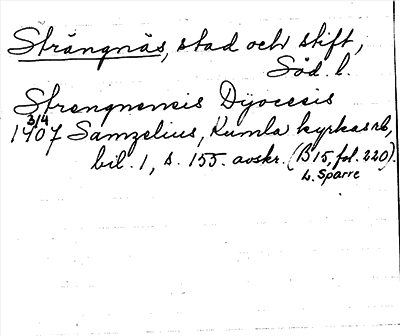 Strängnäs, stad och stift,
Söd. l.
Strengnensis Dyocesis
3/4
1407 Samzelius, Kumla kyrkas rb,
bil. 1, s. 155. avskr. (B 15, fol. 220).
L. Sparre